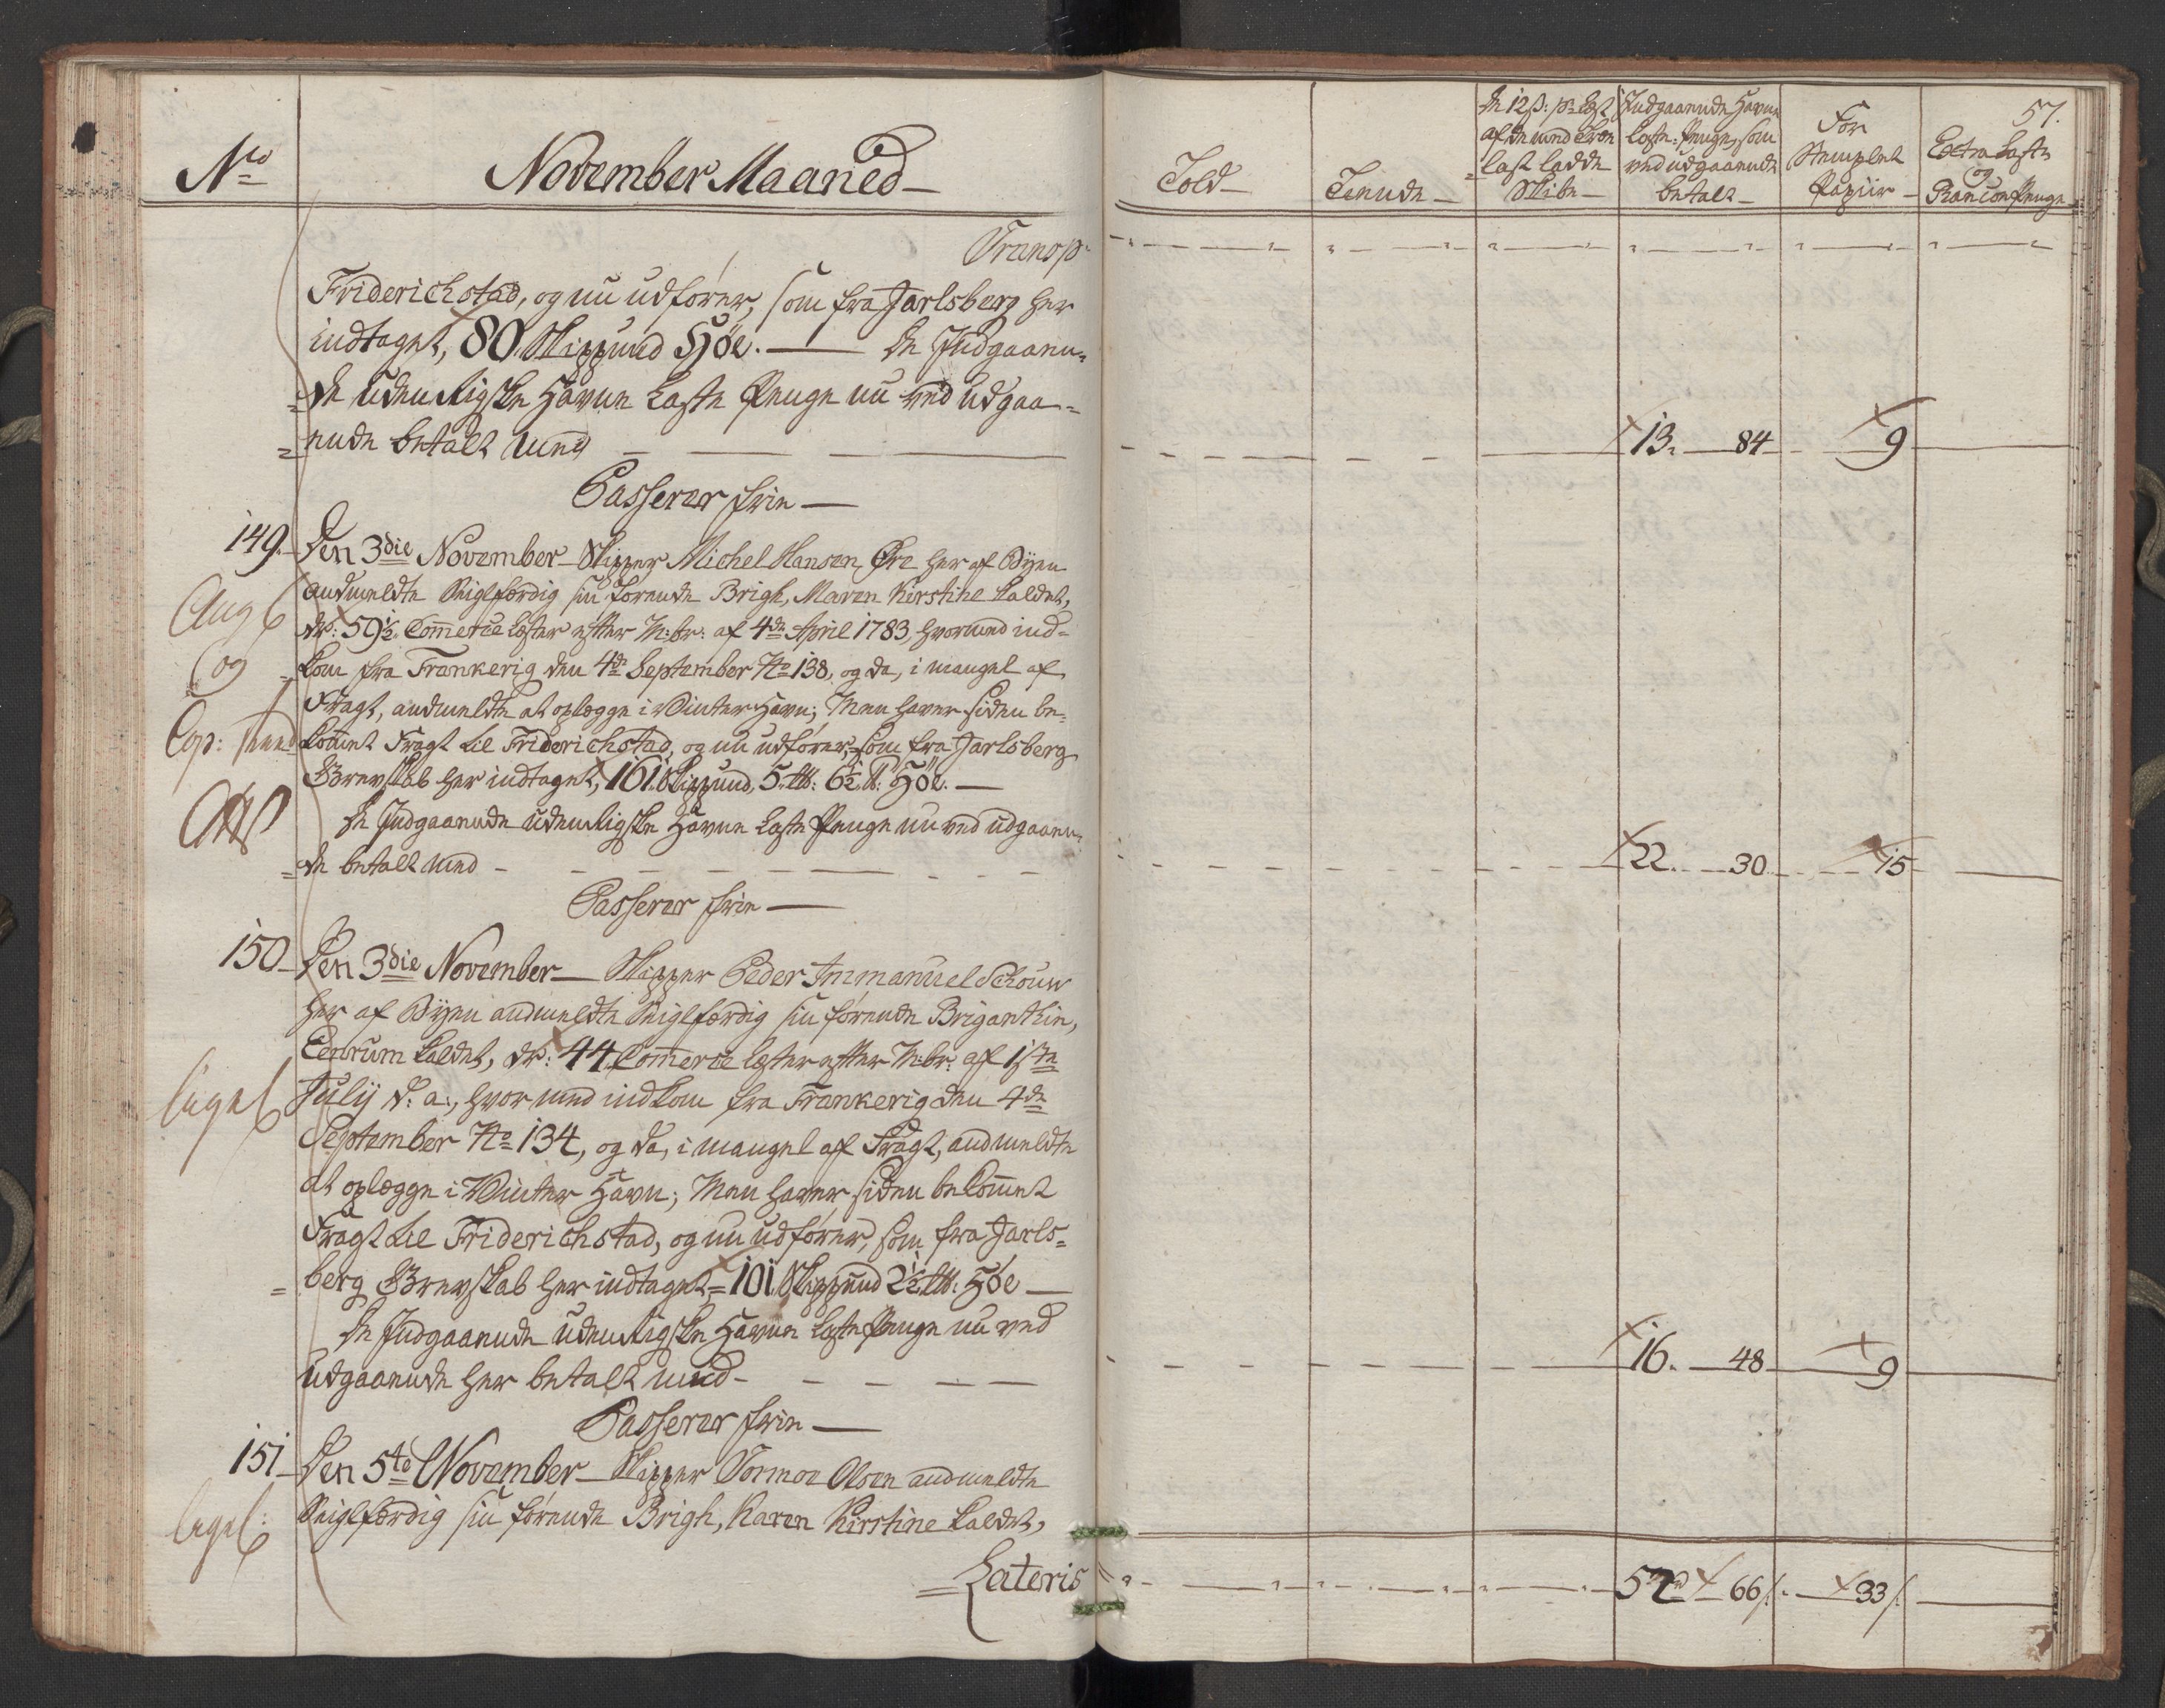 No
November Maaned
Transp:
Friderichstad, og nu udfører, som fra Jarlsberg her
indtaget, 80. Skippund Höe. — De Indgaaen-
de udenrigske Havne Laste Penge nu ved udgaa-
ende betalt med
Passerer frie
149. Den 3die November Skipper Michel Hansen Øre her af Byen
anmeldte Seiglfærdig sin førende Brigh, Maren Kirstine kaldet,
dr: 59½ Commerce Læster efter M:br: af 4de April 1783, hvormed ind-
kom fra Frankerig den 4de September No 138, og da, i mangel af
Fragt, anmeldte at oplægge i Vinter Havn; Men haver siden be-
kommet Fragt til Friderichstad, og nu udfører, som fra Jarlsberg
Grevskab her indtaget, 161 Skippund, 5 L℔: 6½ ℔: Höe.
De Indgaaende udenrigske Havne Laste Penge nu ved udgaaen-
de betalt med
Passerer frie
150 Den 3die November Skipper Peder Immanuel Schouw
her af Byen anmeldte Seiglfærdig sin førende Brigantin,
Centrum kaldet, dr: 44 Commerce læster efter M:br: af 1ste
July d: a:, hvormed indkom fra Frankerig den 4de
September No 134, og da, i mangel af Fragt, anmeldte
at oplægge i Vinter Havn; Men haver siden bekommet
Fragt til Friderichstad, og nu udfører, som fra Jarls-
berg Grevskab her indtaget, 101 Skippund 2½ L℔: Höe
De Indgaaende udenrigske Havne Laste Penge nu ved
udgaaende her betalt med
Passerer frie
151 Den 5te November Skipper Tormoe Olsen anmeldte
Seiglfærdig sin førende Brigh, Karen Kirstine kaldet,
Lateris
og
57.
Told
Tiende
De 12 ß: pr Læst
af de med Træ
last ladde
Skibe
Indgaaende Havne
Laste-Penge, som
ved udgaaende
betalt
For
Stemplet
Papiir
Extra Laste
og
Rancon Penge
13. 84 9
22. 30 15
16. 48 9
52 rd 66 ß. 33 ß.